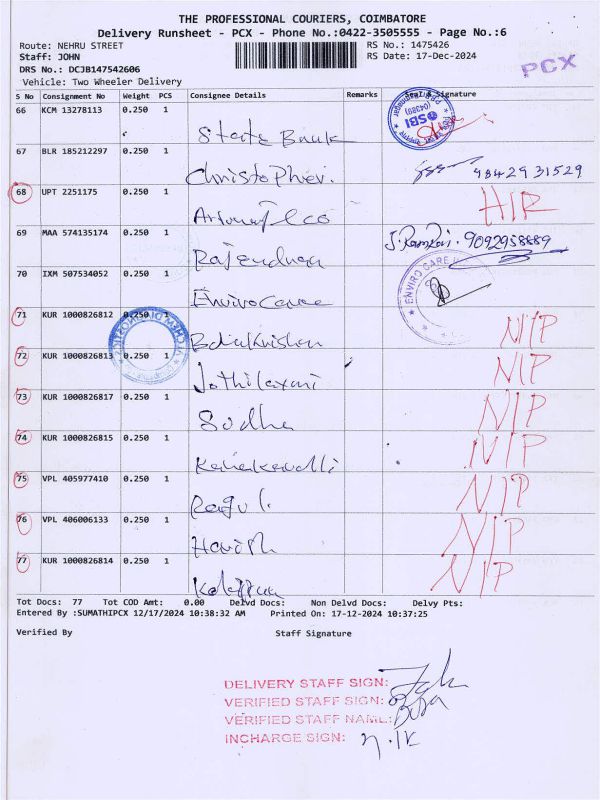 THE PROFESSIONAL COURIERS, COIMBATORE
Delivery Runsheet - PCX - Phone No.:0422-3505555 - Page No.:6
Route: NEHRU STREET RS No.: 1475426
Staff: JOHN RS Date: 17-Dec-2024
DRS No.: DCJB147542606
Vehicle: Two Wheeler Delivery
PCX
S No Consignment No Weight PCS Consignee Details Remarks Seal & Signature
66 KCM 13278113 0.250 1 State Bank SBI
67 BLR 185212297 0.250 1 Christopher. 9842931529
68 UPT 2251175 0.250 1
69 MAA 574135174 0.250 1 Rajendran J. Ramraj. 9092958889
70 IXM 507534052 0.250 1 Envirocare ENVIRO CARE
71 KUR 1000826812 0.250 1 N/P
72 KUR 1000826813 0.250 1 Jothilaxmi N/P
73 KUR 1000826817 0.250 1 Sudha N/P
74 KUR 1000826815 0.250 1 N/P
75 VPL 405977410 0.250 1 Ragul. N/P
76 VPL 406006133 0.250 1 Harish N/P
77 KUR 1000826814 0.250 1 N/P
Tot Docs: 77 Tot COD Amt: 0.00 Delvd Docs: Non Delvd Docs: Delvy Pts:
Entered By :SUMATHIPCX 12/17/2024 10:38:32 AM Printed On: 17-12-2024 10:37:25
Verified By Staff Signature
DELIVERY STAFF SIGN:
VERIFIED STAFF SIGN:
VERIFIED STAFF NAME:
INCHARGE SIGN: